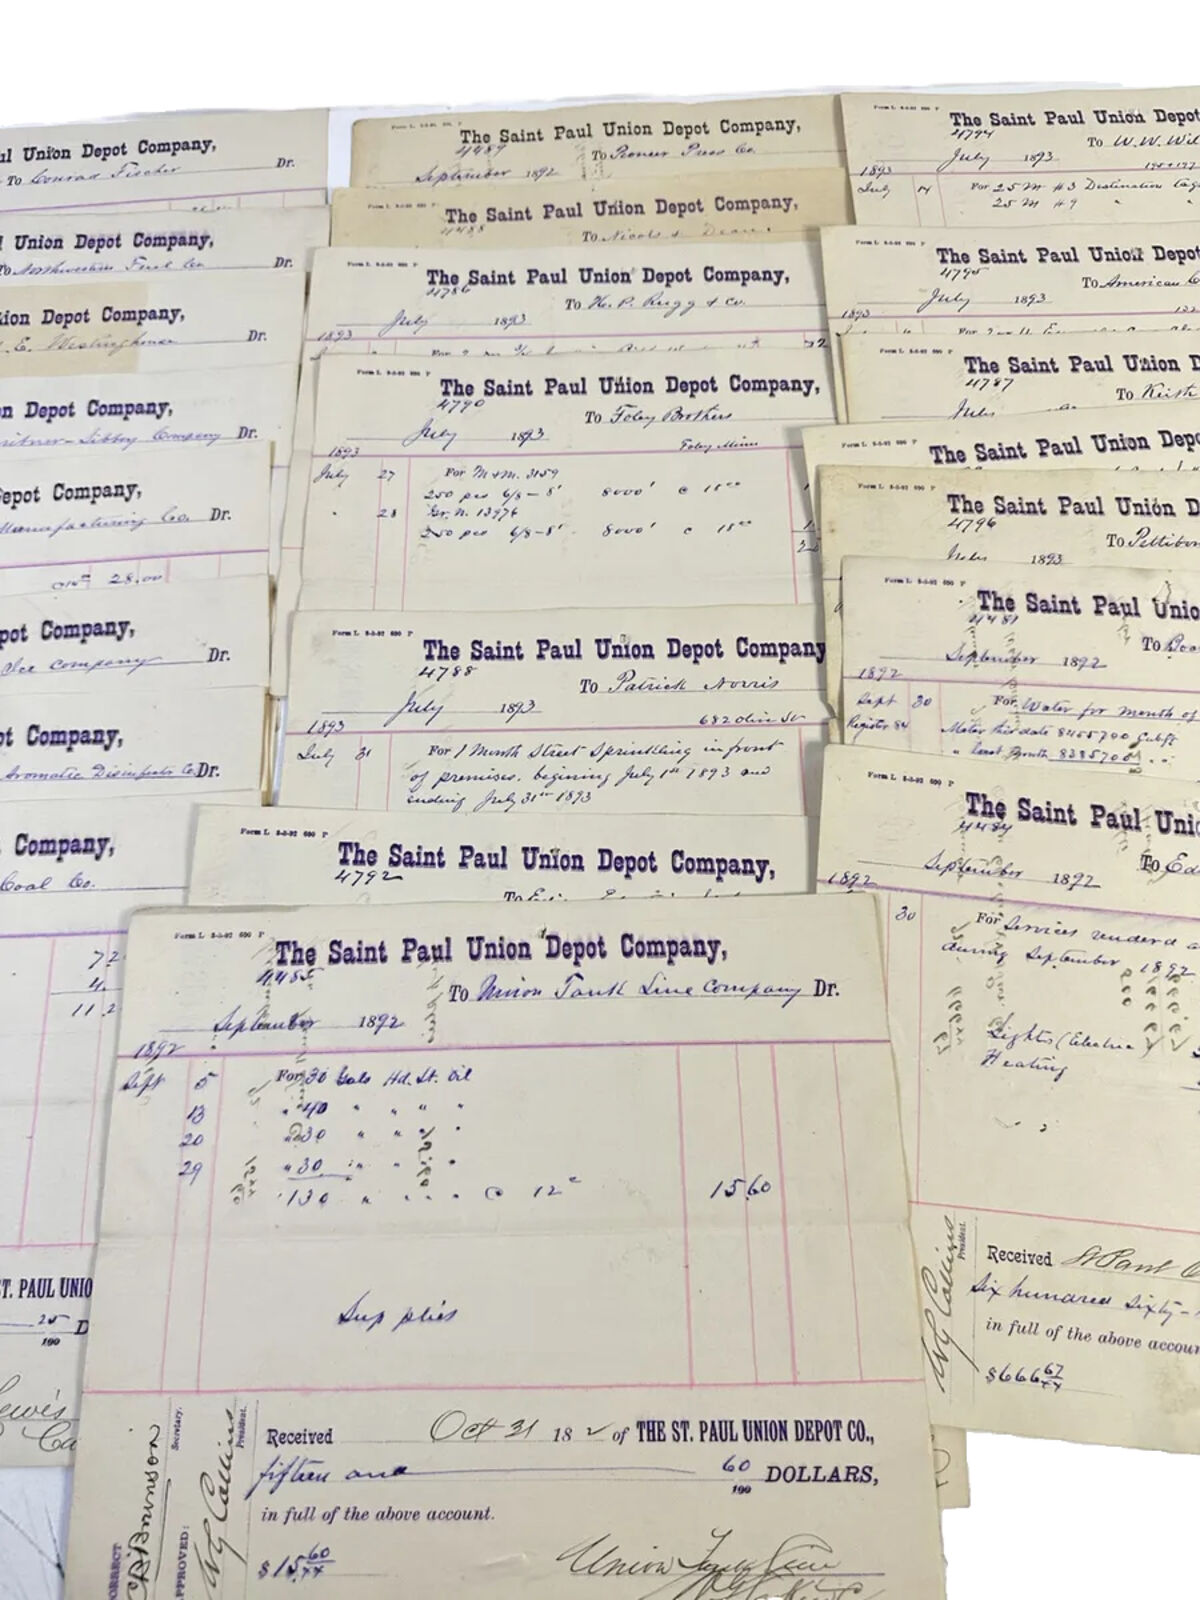 ul Union Depot Company,
To Conrad Fischer Dr.
l Union Depot Company,
To Northwestern Fuel Co. Dr.
ion Depot Company,
. E. Westinghouse Dr.
n Depot Company,
Libbey Company Dr.
epot Company,
Manufacturing Co. Dr.
28.00
pot Company,
Ice Company Dr.
ot Company,
Aromatic Disinfector Co. Dr.
Company,
Coal Co.
11.2
ST. PAUL UNIO
25
100
ewis
Form L 8-5-92 600 P
The Saint Paul Union Depot Company,
4489
To Pioneer Press Co.
September 1892
The Saint Paul Union Depot Company,
4488
To Nicols & Dean
Form L 8-5-92 600 P
The Saint Paul Union Depot Company,
4786
To H. P. Rugg & Co.
July 1893
1893
Form L 8-5-92 600 P
The Saint Paul Union Depot Company,
4790
To Foley Brothers
July 1893
1893
July 27 For M & M. 3159
250 pcs 6/8-8' 8000' @ 18 00
" 28 Gr. N. 13976
250 pcs 6/8-8' 8000' @ 18 00
Form L 8-5-92 600 P
The Saint Paul Union Depot Company
4788
To Patrick Norris
July 1893
682 Olive St
1893
July 31 For 1 Month Street Sprinkling in front
of premises. begining July 1st 1893 and
ending July 31st 1893
Form L 8-5-92 600 P
The Saint Paul Union Depot Company,
4792
To
Form L 8-5-92 600 P
The Saint Paul Union Depot Company,
4485
To Union Tank Line Company Dr.
September 1892
1892
Sept 5 For 30 Gals Hd. Lt. Oil
13 " 40 " " " "
20 " 30 " " " "
29 " 30 " " " "
130 " " " " @ 12c 15.60
Supplies
Received Oct 31 18 2 of THE ST. PAUL UNION DEPOT CO.,
fifteen and 60
100 DOLLARS,
in full of the above account.
$15 60
Union Tank Line
Secretary.
President.
CORRECT
APPROVED:
Form L 8-5-92 600 P
The Saint Paul Union Depot
4794
To W. W. Wil
July 1893
1893
July 14 For 25 M #3 Destination tags
25 M #9 "
Form L 8-5-92 600 P
The Saint Paul Union Depot
4795
To American
July 1893
1893
Form L 8-5-92 600 P
The Saint Paul Union D
4787
To Keith
The Saint Paul Union Depo
Form L 8-5-92 600 P
The Saint Paul Union D
4796
To Pettibon
1893
Form L 8-5-92 600 P
The Saint Paul Unio
4481
To Boa
September 1892
1892
Sept 30 For Water for month of
Register 84 Meter this date 8455700 Cubft
" last Month
Form L 8-5-92 600 P
The Saint Paul Unio
4484
To Ed
September 1892
1892
30 For Services rendered a
during September 1892
Lights (Electric
Heating
President.
Received St Paul
Six hundred Sixty-
in full of the above accoun
$666 67